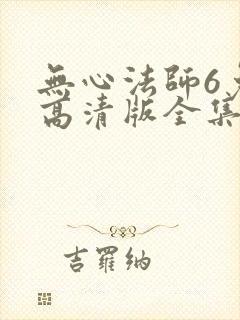 無心法師6
高清版全集
吉羅納